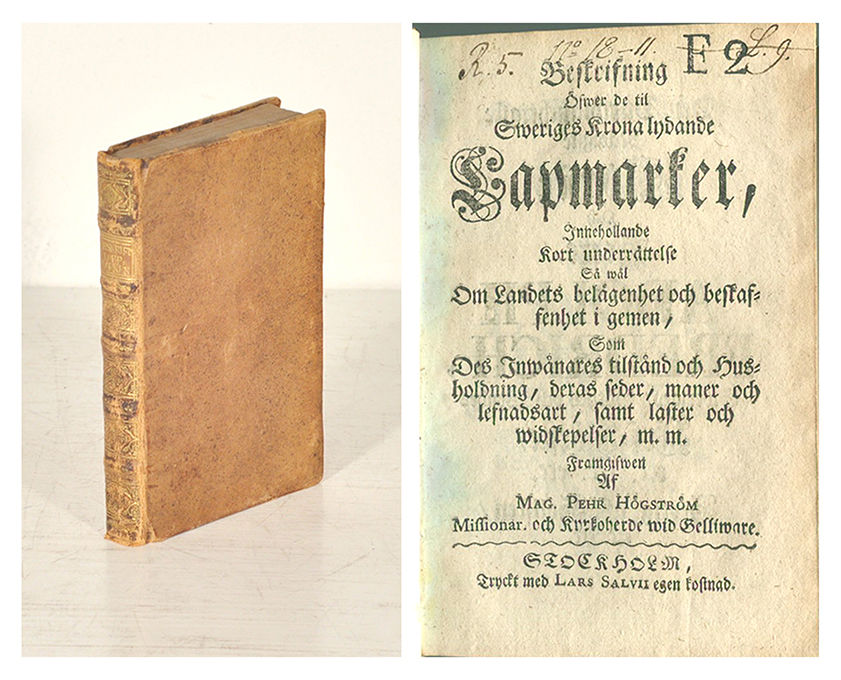 R. 5.
N:o 18-11.
E 2
L. 9.
Beskrifning
Öfwer de til
Sweriges Krona lydande
Lapmarker,
Innehollande
Kort underrättelse
Så wäl
Om Landets belägenhet och beskaf-
fenhet i gemen,
Som
Des Inwånares tilstånd och Hus-
holdning, deras seder, maner och
lefnadsart, samt laster och
widskepelser, m. m.
Framgifwen
Af
MAG. PEHR HÖGSTRÖM
Missionar. och Kyrkoherde wid Gelliware.
STOCKHOLM,
Tryckt med LARS SALVII egen kostnad.